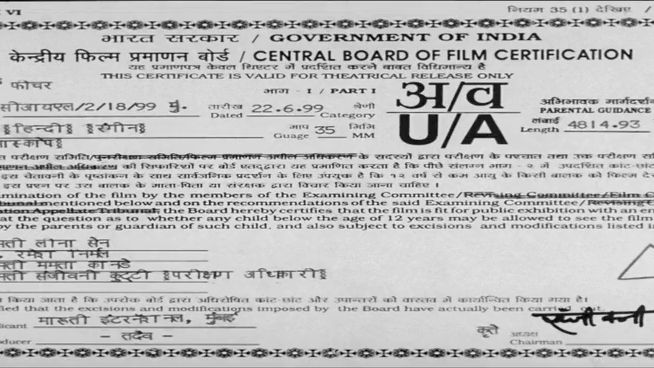 VI नियम 35 (1) देखिए /
भारत सरकार / GOVERNMENT OF INDIA
केन्द्रीय फिल्म प्रमाणन बोर्ड / CENTRAL BOARD OF FILM CERTIFICATION
यह प्रमाणपत्र केवल थिएटर में प्रदर्शित करने बाबत विधिमान्य है
THIS CERTIFICATE IS VALID FOR THEATRICAL RELEASE ONLY
फीचर भाग - I / PART I अ/व
सीआयएल/2/18/99 मु. तारीख 22.6.99 श्रेणी अभिभावक मार्गदर्शन
Dated Category PARENTAL GUIDANCE
हिन्दी रंगीन माप 35 मिमि U/A लंबाई 4814.93
Guage MM Length
परीक्षण समिति/पुनरीक्षण समिति/फिल्म प्रमाणन अपील अधिकरण के सदस्यों द्वारा फिल्म का परीक्षण के पश्चात तथा उक्त परीक्षण
की सिफारिशों पर बोर्ड एतद्द्वारा यह प्रमाणित करता है कि पीछे संलग्न भाग - २ में उपदर्शित कांट-छांट
इस चेतावनी के पृष्ठांकन के साथ सार्वजनिक प्रदर्शन के लिए उपयुक्त है कि १२ वर्ष से कम आयु के किसी बालक को फिल्म
इस प्रश्न पर उस बालक के माता-पिता या संरक्षक द्वारा विचार किया जाना चाहिए ।
mination of the film by the members of the Examining Committee/Revising Committee/Film C
mentioned below and on the recommendations of the said Examining Committee/Revising
ation Appellate Tribunal, the Board hereby certifies that the film is fit for public exhibition with an en
at the question as to whether any child below the age of 12 years may be allowed to see the film
by the parents or guardian of such child, and also subject to excisions and modifications listed i
मती लीना सेन
रमेश निर्मल
मती ममता कानडे
मती संजीवनी कुट्टी परीक्षण अधिकारी
किया जाता है कि उपरोक्त बोर्ड द्वारा अधिरोपित कांट-छांट और उपान्तरों को वास्तव में कार्यान्वित किया गया है।
fied that the excisions and modifications imposed by the Board have actually been carried out.
licant मारूती इंटरनॅशनल, मुंबई
- तदैव - कृते अध्यक्ष
oducer Chairman